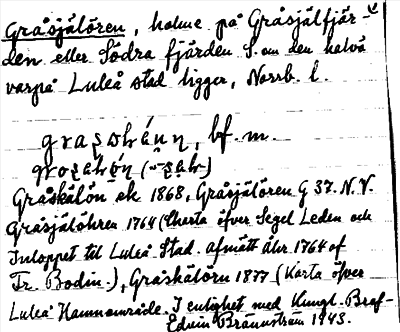 Gråsjälören, holme på Gråsjälfjär-
den eller Södra fjärden S. om den halvö
varpå Luleå stad ligger, Norrb. l.
bf. m.
Gråskälön ek 1868, Gråsjälören G 37. N.V.
Gråsjälöhren 1764 (Charta öfver Segel Leden och
Inloppet til Luleå Stad. afmätt åhr 1764 af
Fr. Bodin.), Gråskälörn 1877 (Karta öfver
Luleå Hamnområde. I enlighet med Kungl. Bref-
Edvin Brännström 1943.